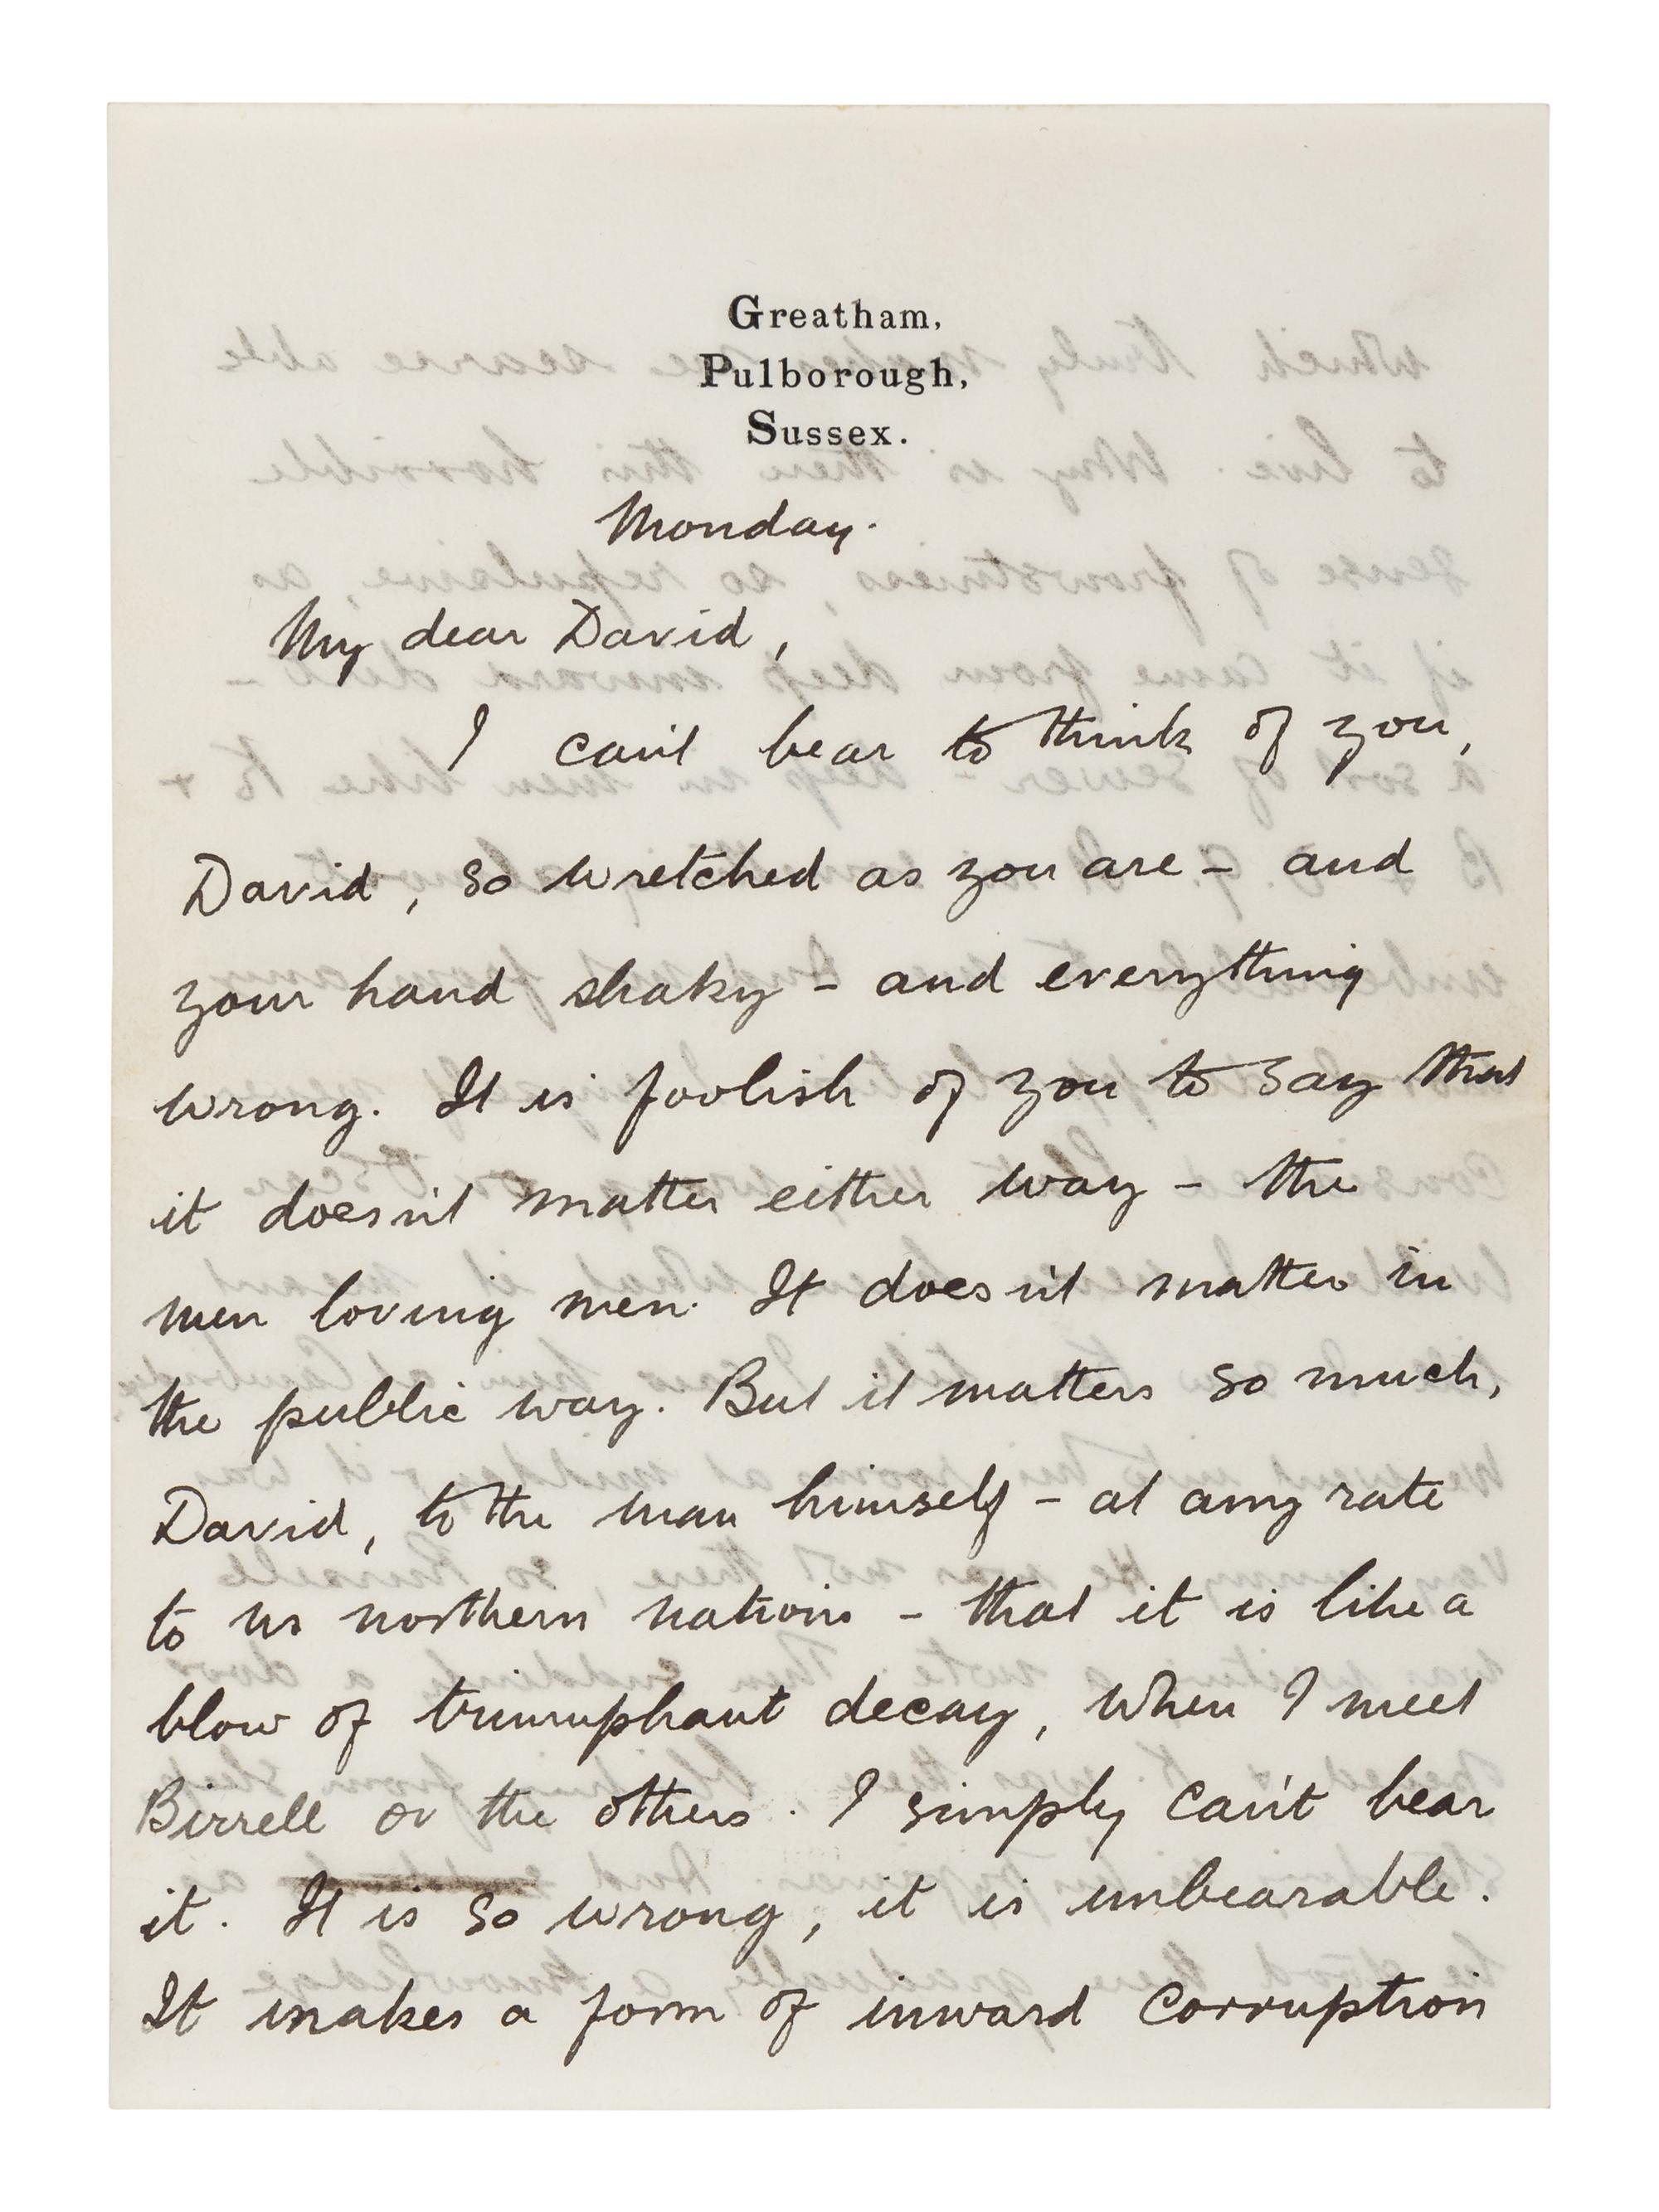 Greatham,
Pulborough,
Sussex.
Monday.
My dear David,
I can't bear to think of you,
David, so wretched as you are – and
your hand shaky – and everything
wrong. It is foolish of you to say that
it doesn't matter either way – the
men loving men. It doesn't matter in
the public way. But it matters so much,
David, to the man himself – at any rate
to us northern nations – that it is like a
blow of triumphant decay, when I meet
Birrell or the others. I simply can't bear
it. It is so wrong, it is unbearable.
It makes a form of inward corruption